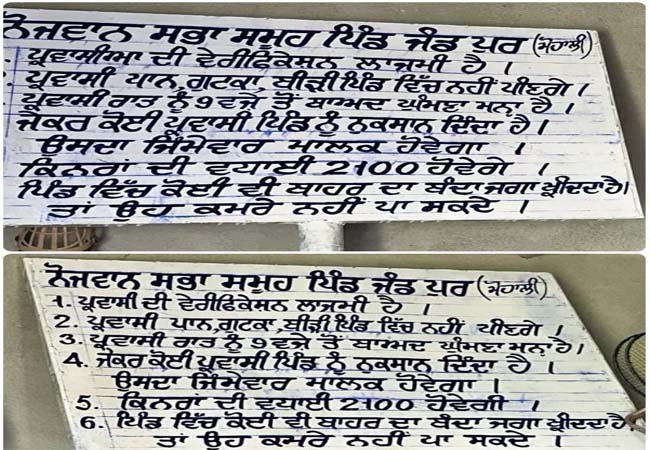 ਨੋਜਵਾਨ ਸਭਾ ਸਮੂਹ ਪਿੰਡ ਜੰਡ ਪੁਰ (ਮੋਹਾਲੀ)
ਪ੍ਰਵਾਸੀਆ ਦੀ ਵੇਰੀਫਿਕੇਸ਼ਨ ਲਾਜਮੀ ਹੈ ।
ਪ੍ਰਵਾਸੀ ਪਾਨ,ਗੁਟਕਾ, ਬੀੜੀ ਪਿੰਡ ਵਿੱਚ ਨਹੀਂ ਪੀਣਗੇ ।
ਪ੍ਰਵਾਸੀ ਰਾਤ ਨੂੰ 9 ਵਜੇ ਤੋਂ ਬਾਅਦ ਘੁੰਮਣਾ ਮਨ੍ਹਾ ਹੈ ।
ਜੇਕਰ ਕੋਈ ਪ੍ਰਵਾਸੀ ਪਿੰਡ ਨੂੰ ਨੁਕਸਾਨ ਦਿੰਦਾ ਹੈ ।
ਉਸਦਾ ਜਿੰਮੇਵਾਰ ਮਾਲਕ ਹੋਵੇਗਾ ।
ਕਿਨਰਾਂ ਦੀ ਵਧਾਈ 2100 ਹੋਵੇਗੀ ।
ਪਿੰਡ ਵਿੱਚ ਕੋਈ ਵੀ ਬਾਹਰ ਦਾ ਬੰਦਾ ਜਗਾ ਖ੍ਰੀਦਦਾ ਹੈ।
ਤਾਂ ਉਹ ਕਮਰੇ ਨਹੀਂ ਪਾ ਸਕਦੇ ।
ਨੋਜਵਾਨ ਸਭਾ ਸਮੂਹ ਪਿੰਡ ਜੰਡ ਪੁਰ (ਮੋਹਾਲੀ)
1. ਪ੍ਰਵਾਸੀ ਦੀ ਵੇਰੀਫਿਕੇਸ਼ਨ ਲਾਜਮੀ ਹੈ ।
2. ਪ੍ਰਵਾਸੀ ਪਾਨ,ਗੁਟਕਾ,ਬੀੜੀ ਪਿੰਡ ਵਿੱਚ ਨਹੀਂ ਪੀਣਗੇ ।
3. ਪ੍ਰਵਾਸੀ ਰਾਤ ਨੂੰ 9 ਵਜੇ ਤੋਂ ਬਾਅਦ ਘੁੰਮਣਾ ਮਨਾ ਹੈ।
4. ਜੇਕਰ ਕੋਈ ਪ੍ਰਵਾਸੀ ਪਿੰਡ ਨੂੰ ਨੁਕਸਾਨ ਦਿੰਦਾ ਹੈ ।
ਉਸਦਾ ਜਿੰਮੇਵਾਰ ਮਾਲਕ ਹੋਵੇਗਾ ।
5. ਕਿਨਰਾਂ ਦੀ ਵਧਾਈ 2100 ਹੋਵੇਗੀ ।
6. ਪਿੰਡ ਵਿੱਚ ਕੋਈ ਵੀ ਬਾਹਰ ਦਾ ਬੰਦਾ ਜਗਾ ਖ੍ਰੀਦਦਾ ਹੈ
ਤਾਂ ਉਹ ਕਮਰੇ ਨਹੀਂ ਪਾ ਸਕਦੇ ।